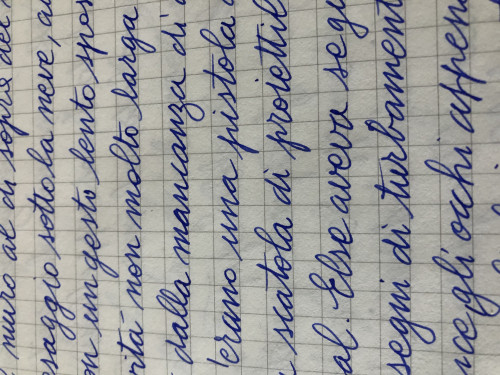 muro al di sopra de
esaggio sotto la neve, a
on un gesto lento spos
rità non molto larga
dalla mancanza di
'erano una pistola
scatola di proiettil
al. Else aveva segu
segni di turbament
nce gli occhi appen